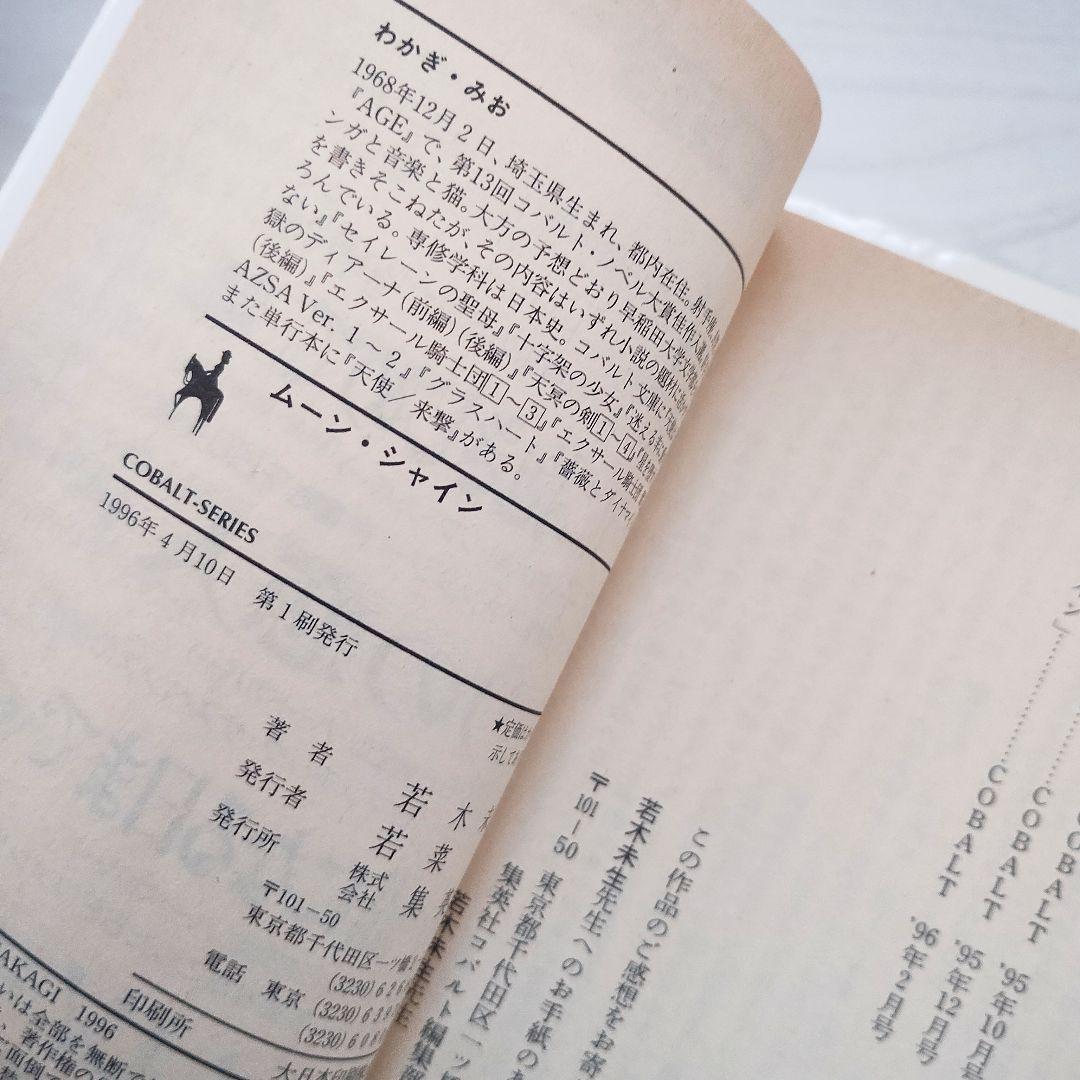 わかぎ・みお
1968年12月2日、埼玉県生まれ、都内在住。射手座、
『AGE』で、第13回コバルト・ノベル大賞佳作入選。
ンガと音楽と猫。大方の予想どおり早稲田大学文学
を書きそこねたが、その内容はいずれ小説の題材に
ろんでいる。専修学科は日本史。コバルト文庫に『天使
ない』『セイレーンの聖母』『十字架の少女』『迷える
獄のディアーナ(前編)(後編)』『天冥の剣1~4』『星を
(後編)』『エクサール騎士団1~3』『エクサール騎士団
AZSA Ver. 1~2』『グラスハート』『薔薇とダイヤモ
また単行本に『天使/来撃』がある。
ムーン・シャイン
COBALT-SERIES
1996年4月10日 第1刷発行
★定価は
示して
著者 若木
発行者 若菜
発行所 株式会社 集
〒101-50
東京都千代田区一ツ橋
電話 東京
(3230)6
(3230)6
(3230)6
AKAGI 1996
印刷所
大日本印刷
いは全部を無断で
、著作権の
イン』…………COBALT '95年10月号
…………COBALT '95年12月号
…………COBALT '96年2月号
この作品のご感想をお寄
若木未生先生へのお手紙の
〒101-50 東京都千代田区一ツ
集英社コバルト編集部
若木未生先生